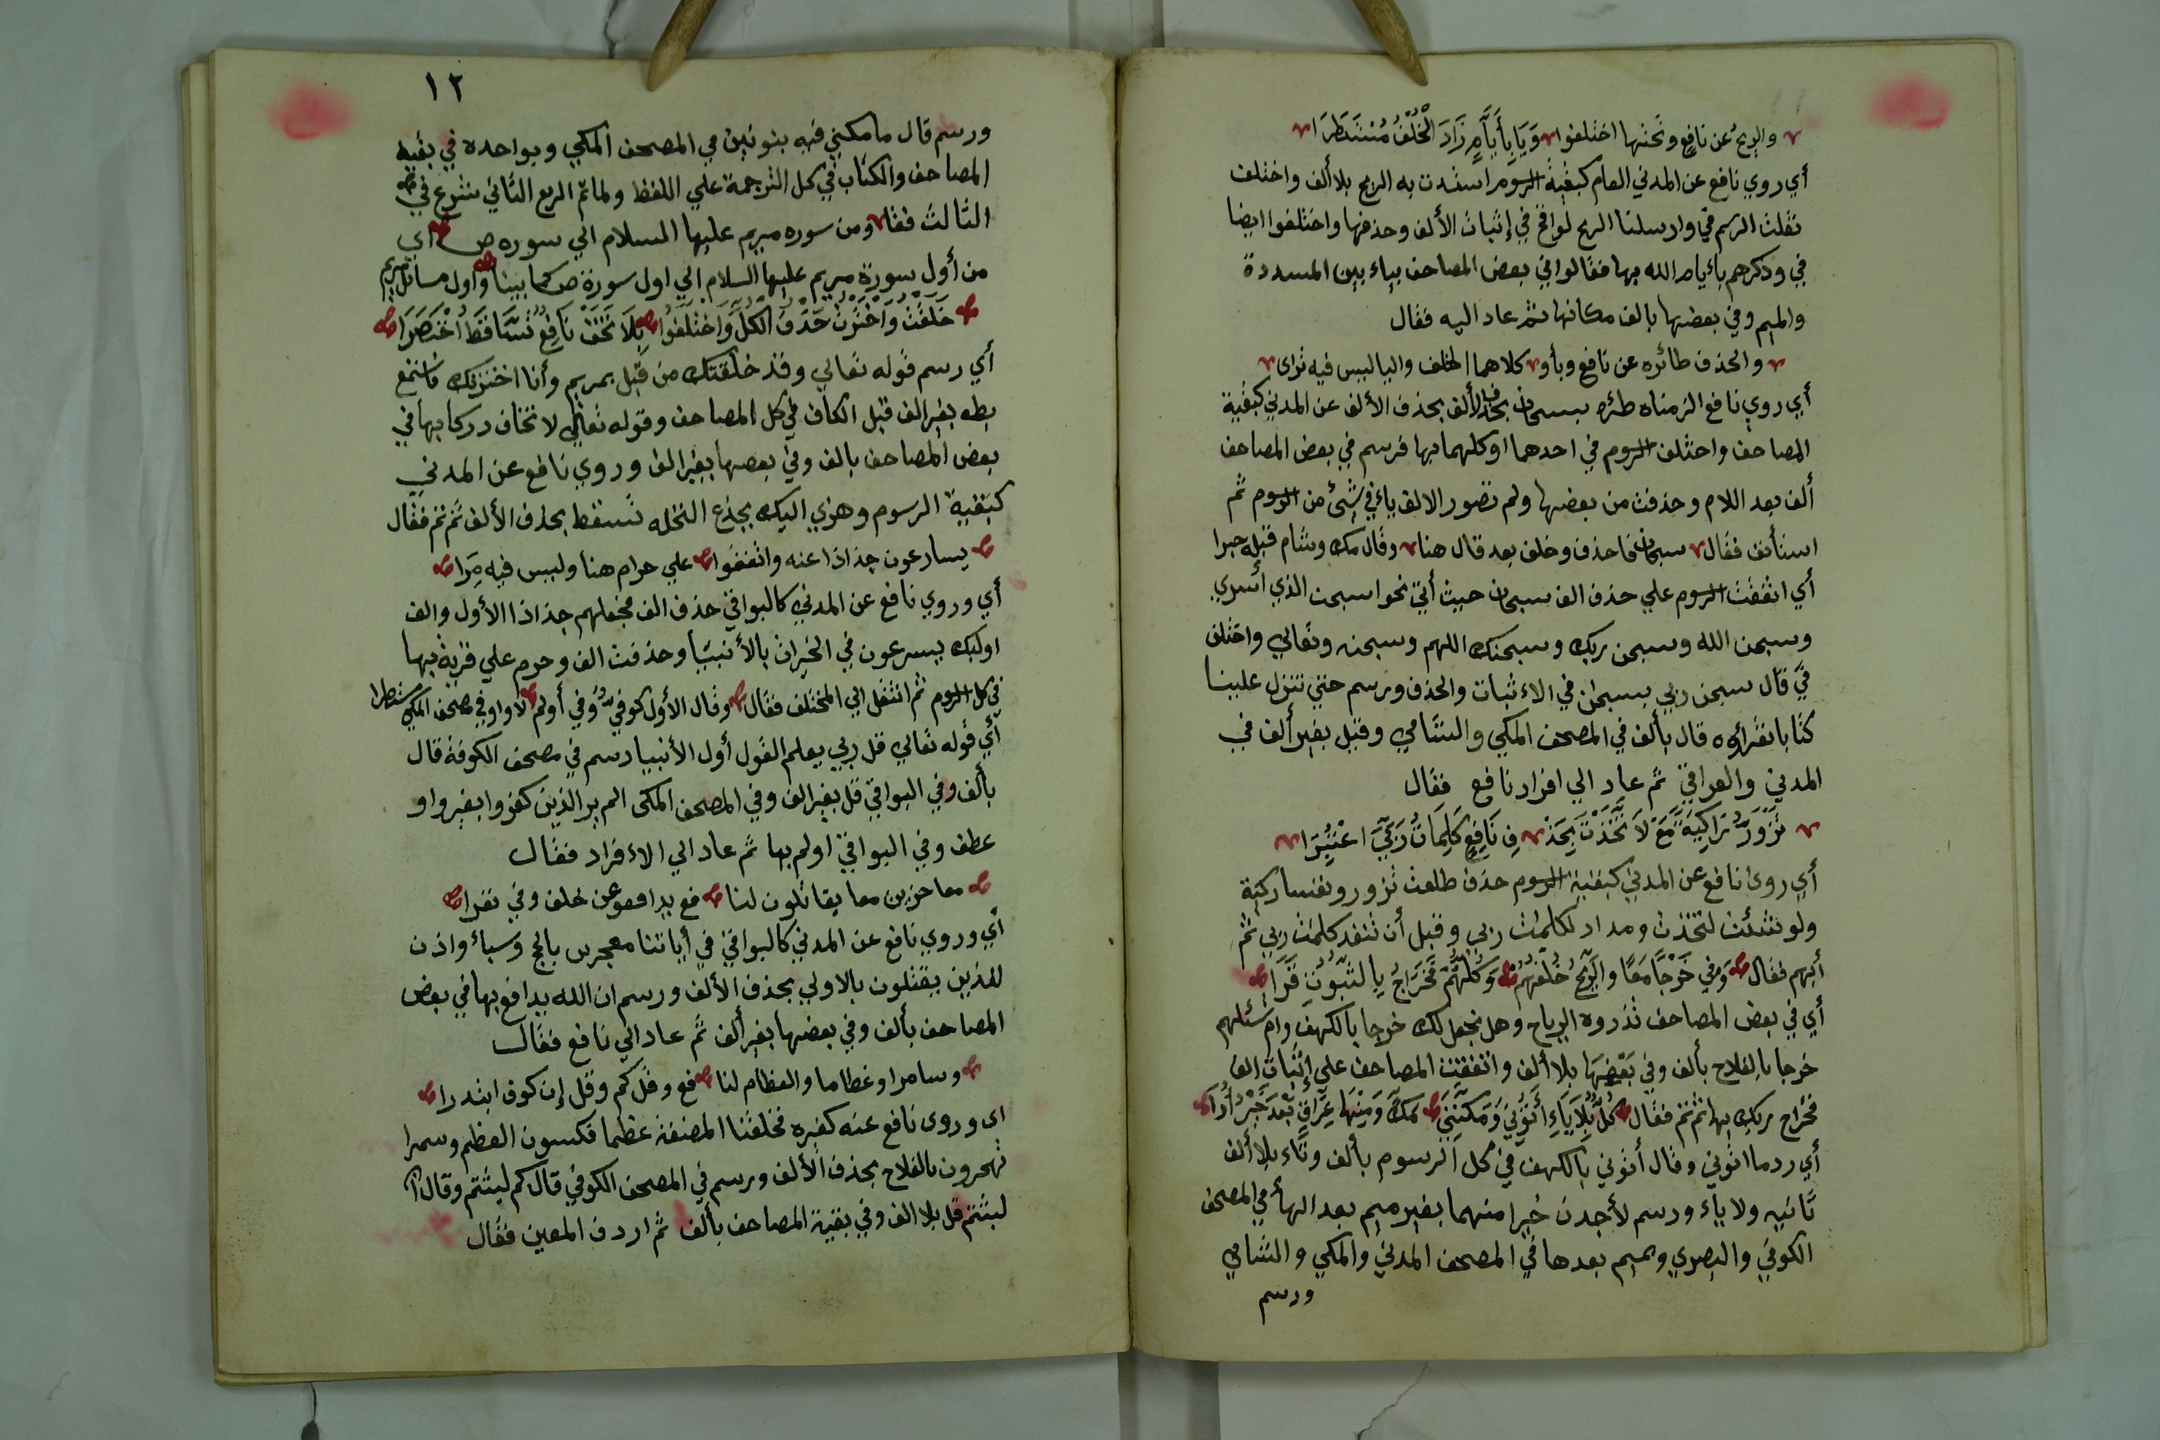 والريح عن نافع وتحتها اختلفوا ويا بأيام زاد الخلف مستطرا
أي روي نافع عن المدني العام كبقية الرسوم اشتدت به الريح بلا ألف واختلف
نقلت الرسم في وارسلنا الريح لواقح في إثبات الألف وحذفها واختلفوا ايضا
في وذكرهم بأيام الله بها فقالوا في بعض المصاحف بياء بين المسددة
والميم وفي بعضها بالف مكانها ثم عاد اليه فقال
والحذف طائره عن نافع وبأو كلاهما الخلف واليا ليس فيه نراى
أي روي نافع الزمناه طئره بسبحان بحذف الألف بحذف الألف عن المدني كبقية
المصاحف واختلف الرسوم في احدهما اوكلهما بها فرسم في بعض المصاحف
ألف بعد اللام وحذفت من بعضها ولم تصور الالف ياء في شئ من الرسوم ثم
استأنف فقال سبحان فاحذف وخلف بعد قال هنا وقال مك وشام قبله خبرا
أي اتفقت الرسوم علي حذف الف سبحان حيث أتي نحوا سبحن الذي أسري
وسبحن الله وسبحن ربك وسبحنك اللهم وسبحنه وتعالي واختلف
في قال سبحن ربي بسبحان في الاثبات والحذف ورسم حتي تنزل علينا
كتابا نقرأوه قال بألف في المصحف المكي والشامي وقبل بغير ألف في
المدني والعراقي ثم عاد الي افراد نافع فقال
تزور زاكية مع لاتخذت بحذ ف نافع كلمات ربي اعتبرا
أي روى نافع عن المدني كبقية الرسوم حذف طلعت تزور ونفسا زكية
ولو شئت لتخذت ومداد لكلمت ربي وقبل أن تنفد كلمت ربي ثم
أبهم فقال وفي خرجا معا والريح خلفهم وكلهم فخراج بالثبوت قرا
أي في بعض المصاحف تذروه الرياح وهل نجعل لك خرجا بالكهف وام تسئلهم
خرجا بالفلاح بألف وفي بعضها بلا ألف واتفقت المصاحف علي إثبات الف
فخراج ربك بها ثم تم فقال كل بلا ياء أتوني ومكنني مك ومنها عراق بعد خير أرا
أي ردما اتوني وقال أتوني بالكهف في كل الرسوم بألف وتاء بلا ألف
ثانيه ولا ياء ورسم لأجدن خيرا منهما بغير ميم بعد الهأ في المصحف
الكوفي والبصري وبميم بعدها في المصحف المدني والمكي والشامي
ورسم
١٢
ورسم قال مامكني فيه بنونين في المصحف المكي وبواحده في بقية
المصاحف والكتاب في كل الترجمة علي اللفظ ولماتم الربع الثاني شرع في
الثالث فقا ومن سوره مريم عليها السلام الي سوره ص أي
من أول سورة مريم عليها السلام الي اول سورة ص كما بينا واول مسائل مريم
خلقت واخترت حذف الكل واختلفوا بلا تخف نافع تساقط اختصرا
أي رسم قوله تعالي وقد خلقتك من قبل بمريم وأنا اخترتك فاستمع
بطه بغير الف قبل الكاف في كل المصاحف وقوله تعالي لا تخاف دركا بها في
بعض المصاحف بالف وفي بعضها بغير الف وروي نافع عن المدني
كبقية الرسوم وهزي اليك بجذع النخله تسقط بحذف الألف ثم تم فقال
يسارعون جذاذا عنه واتفقوا علي حرام هنا وليس فيه مرا
أي وروي نافع عن المدني كالبواقي حذف الف فجعلهم جذاذا الأول والف
اوليك يسرعون في الخيرات بالأنبيا وحذفت الف وحرم علي قرية بها
في كل الرسوم ثم انتقل الي المختلف فقال وقال الأول كوفي وفي أولم لاواو في مصحف المكي مستطرا
أي قوله تعالي قل ربي يعلم القول أول الأنبيا رسم في مصحف الكوفة قال
بألف وفي البواقي قل بغير الف وفي المصحف المكى الم ير الذين كفروا بغير واو
عطف وفي البواقي اولم بها ثم عاد الي الافراد فقال
معاجزين معا يقاتلون لنا فع يدافعو عن خلف وفي نفرا
أي وروي نافع عن المدني كالبواقي في أياتنا معجزين بالحج وسباء واذن
للذين يقتلون بالاولي بحذف الألف ورسم ان الله يدافع بها في بعض
المصاحف بألف وفي بعضها بغير ألف ثم عاد الي نافع فقال
وسامرا وعظاما والعظام لنا فع وقل كم وقل إن كوف ابتدرا
اى وروى نافع عنه كغيره فخلقنا المضغة عظما فكسون العظم وسمرا
تهجرون بالفلاح بحذف الألف ورسم في المصحف الكوفي قال كم لبثتم وقال ان
لبثتم قل بلا الف وفي بقية المصاحف بألف ثم اردف المعين فقال